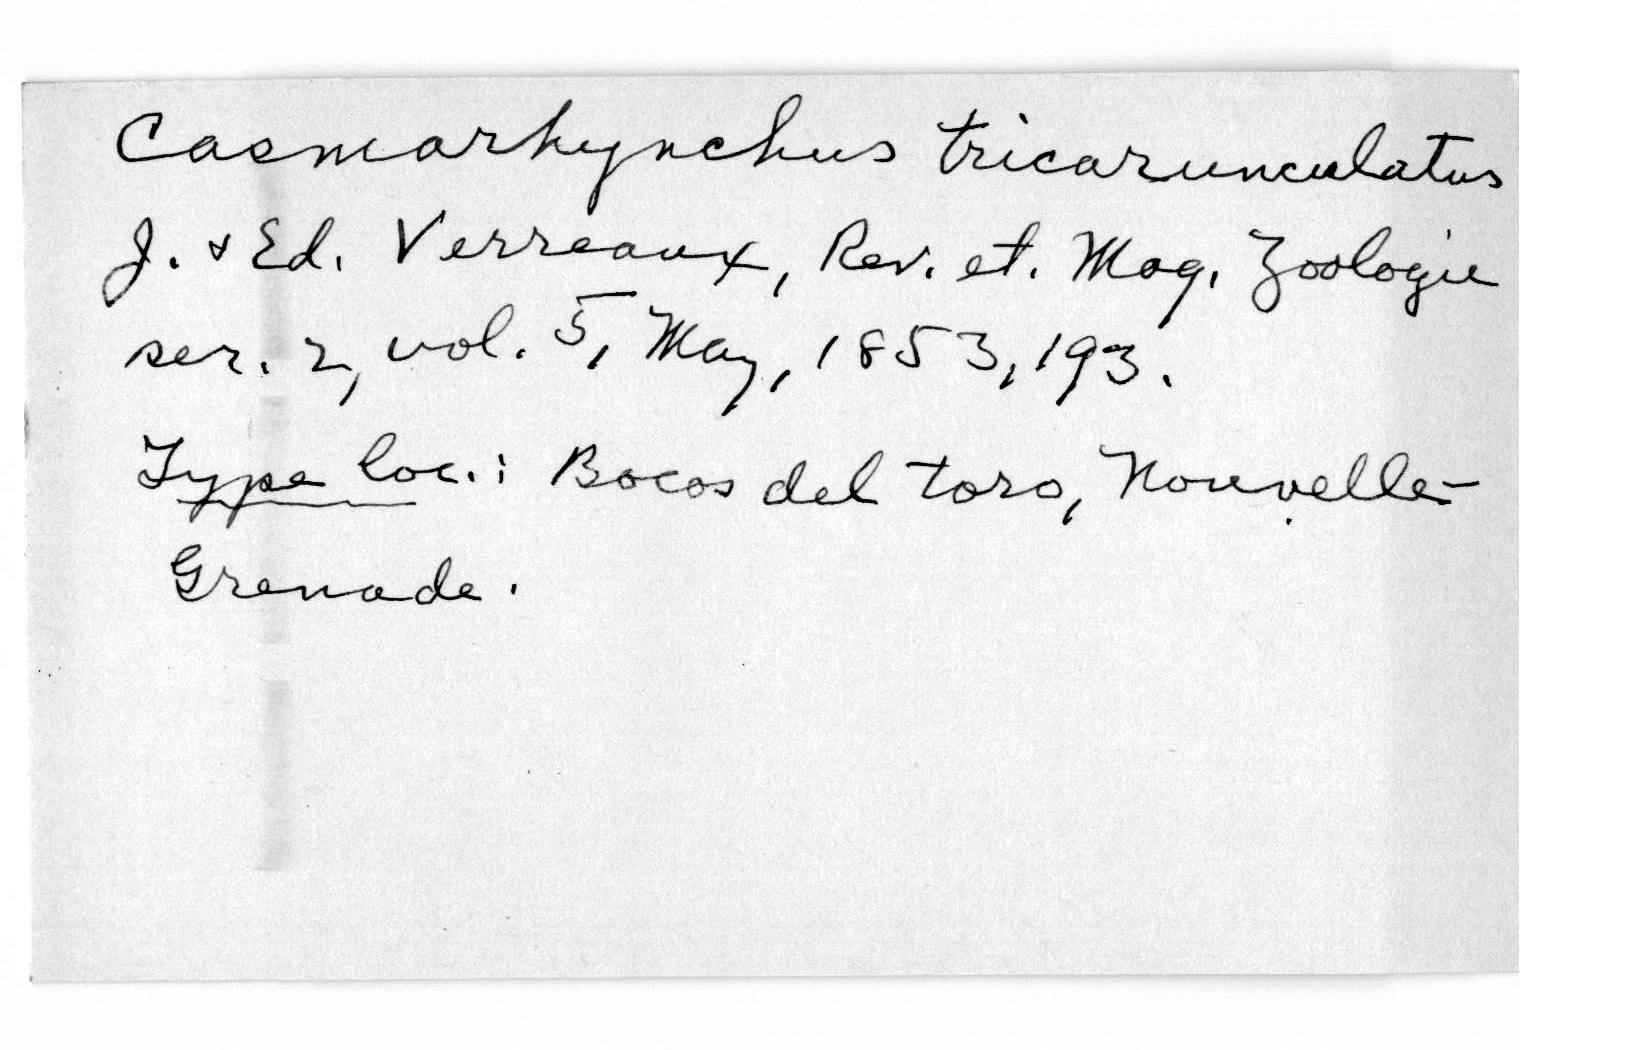 Casmarhynchus tricarunculatus
J. & Ed. Verreaux, Rev. et. Mag. Zoologie
ser. 2, vol. 5, May, 1853, 193.
Type loc.: Bocas del toro, Nouvelle-
Grenade.